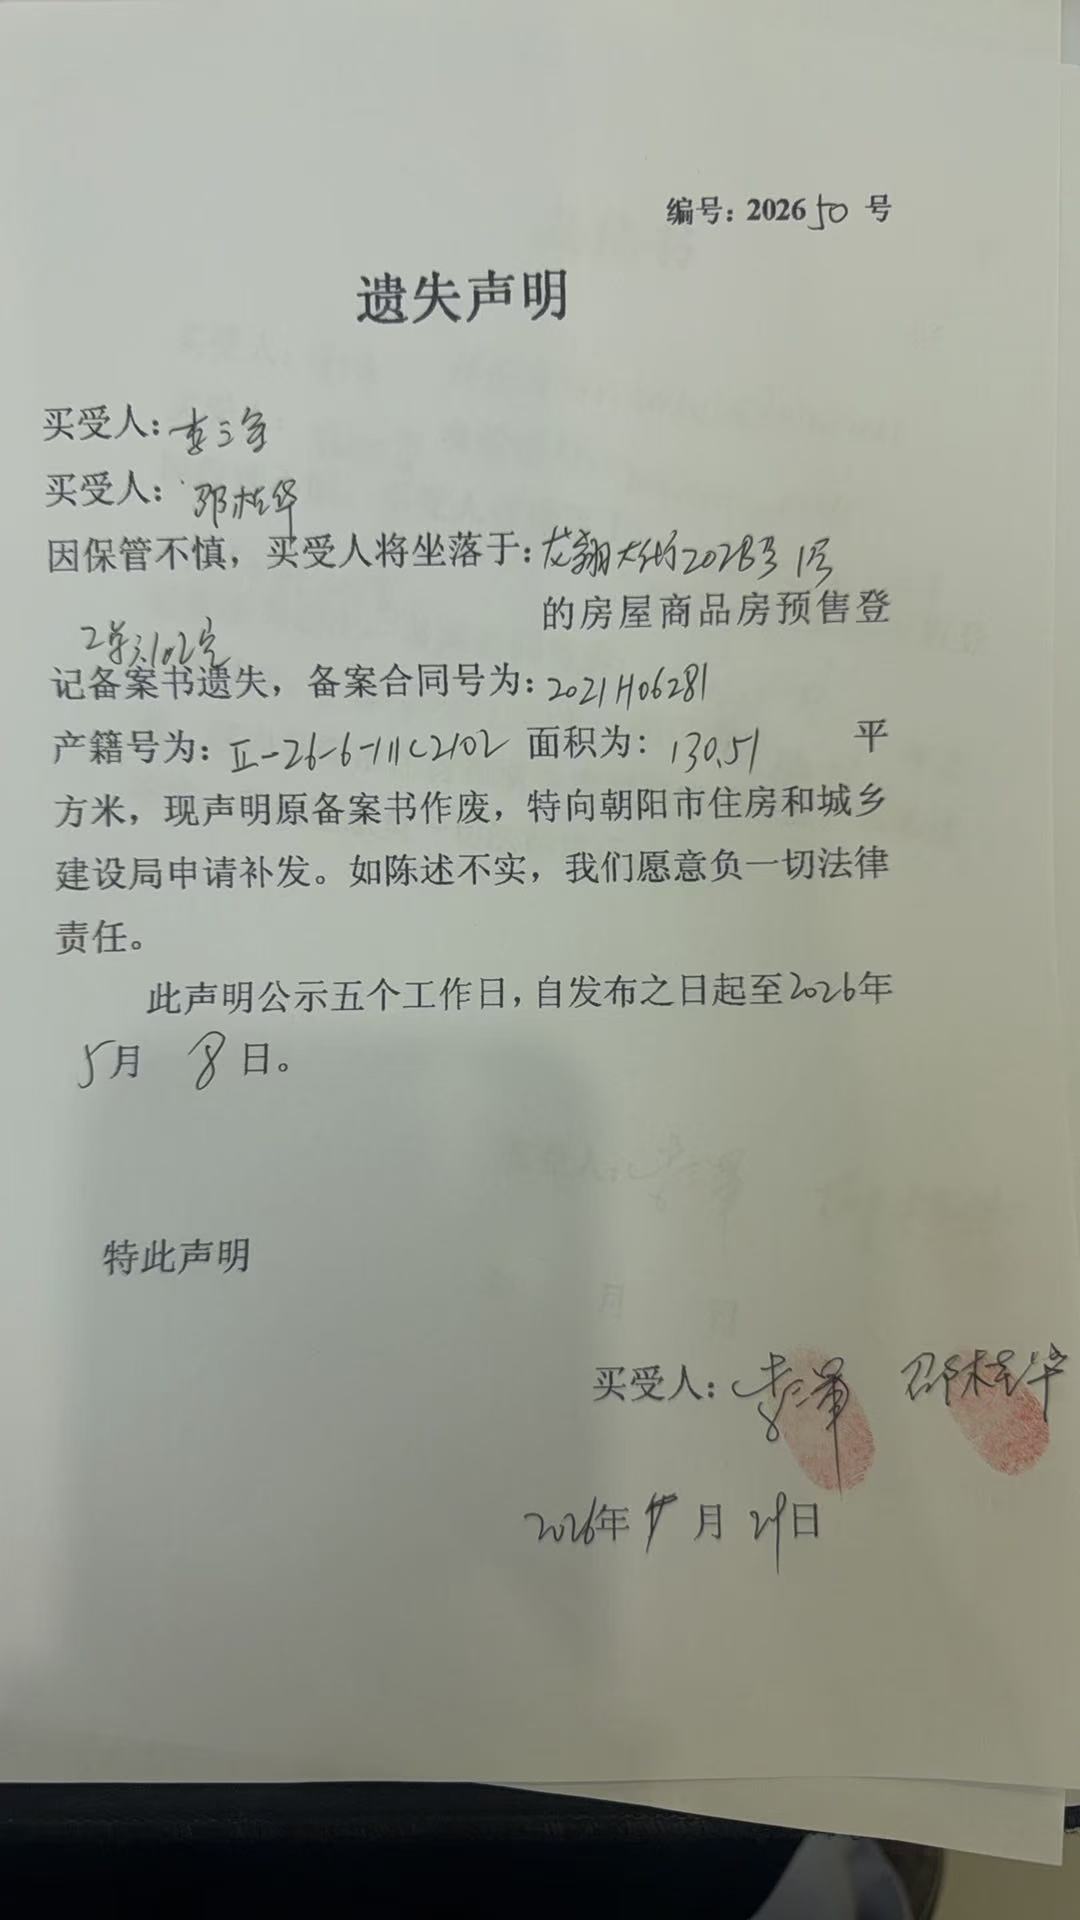 编号：202650号
遗失声明
买受人：李三军
买受人：邵桂华
因保管不慎，买受人将坐落于：龙翔大街202B号1号
的房屋商品房预售登
2单元102室
记备案书遗失，备案合同号为：2021H06281
产籍号为：Ⅱ-26-6-11C2102 面积为：130.51 平
方米，现声明原备案书作废，特向朝阳市住房和城乡
建设局申请补发。如陈述不实，我们愿意负一切法律
责任。
此声明公示五个工作日，自发布之日起至2026年
5月 8日。
特此声明
买受人： 邵桂华
2026年 月 29日